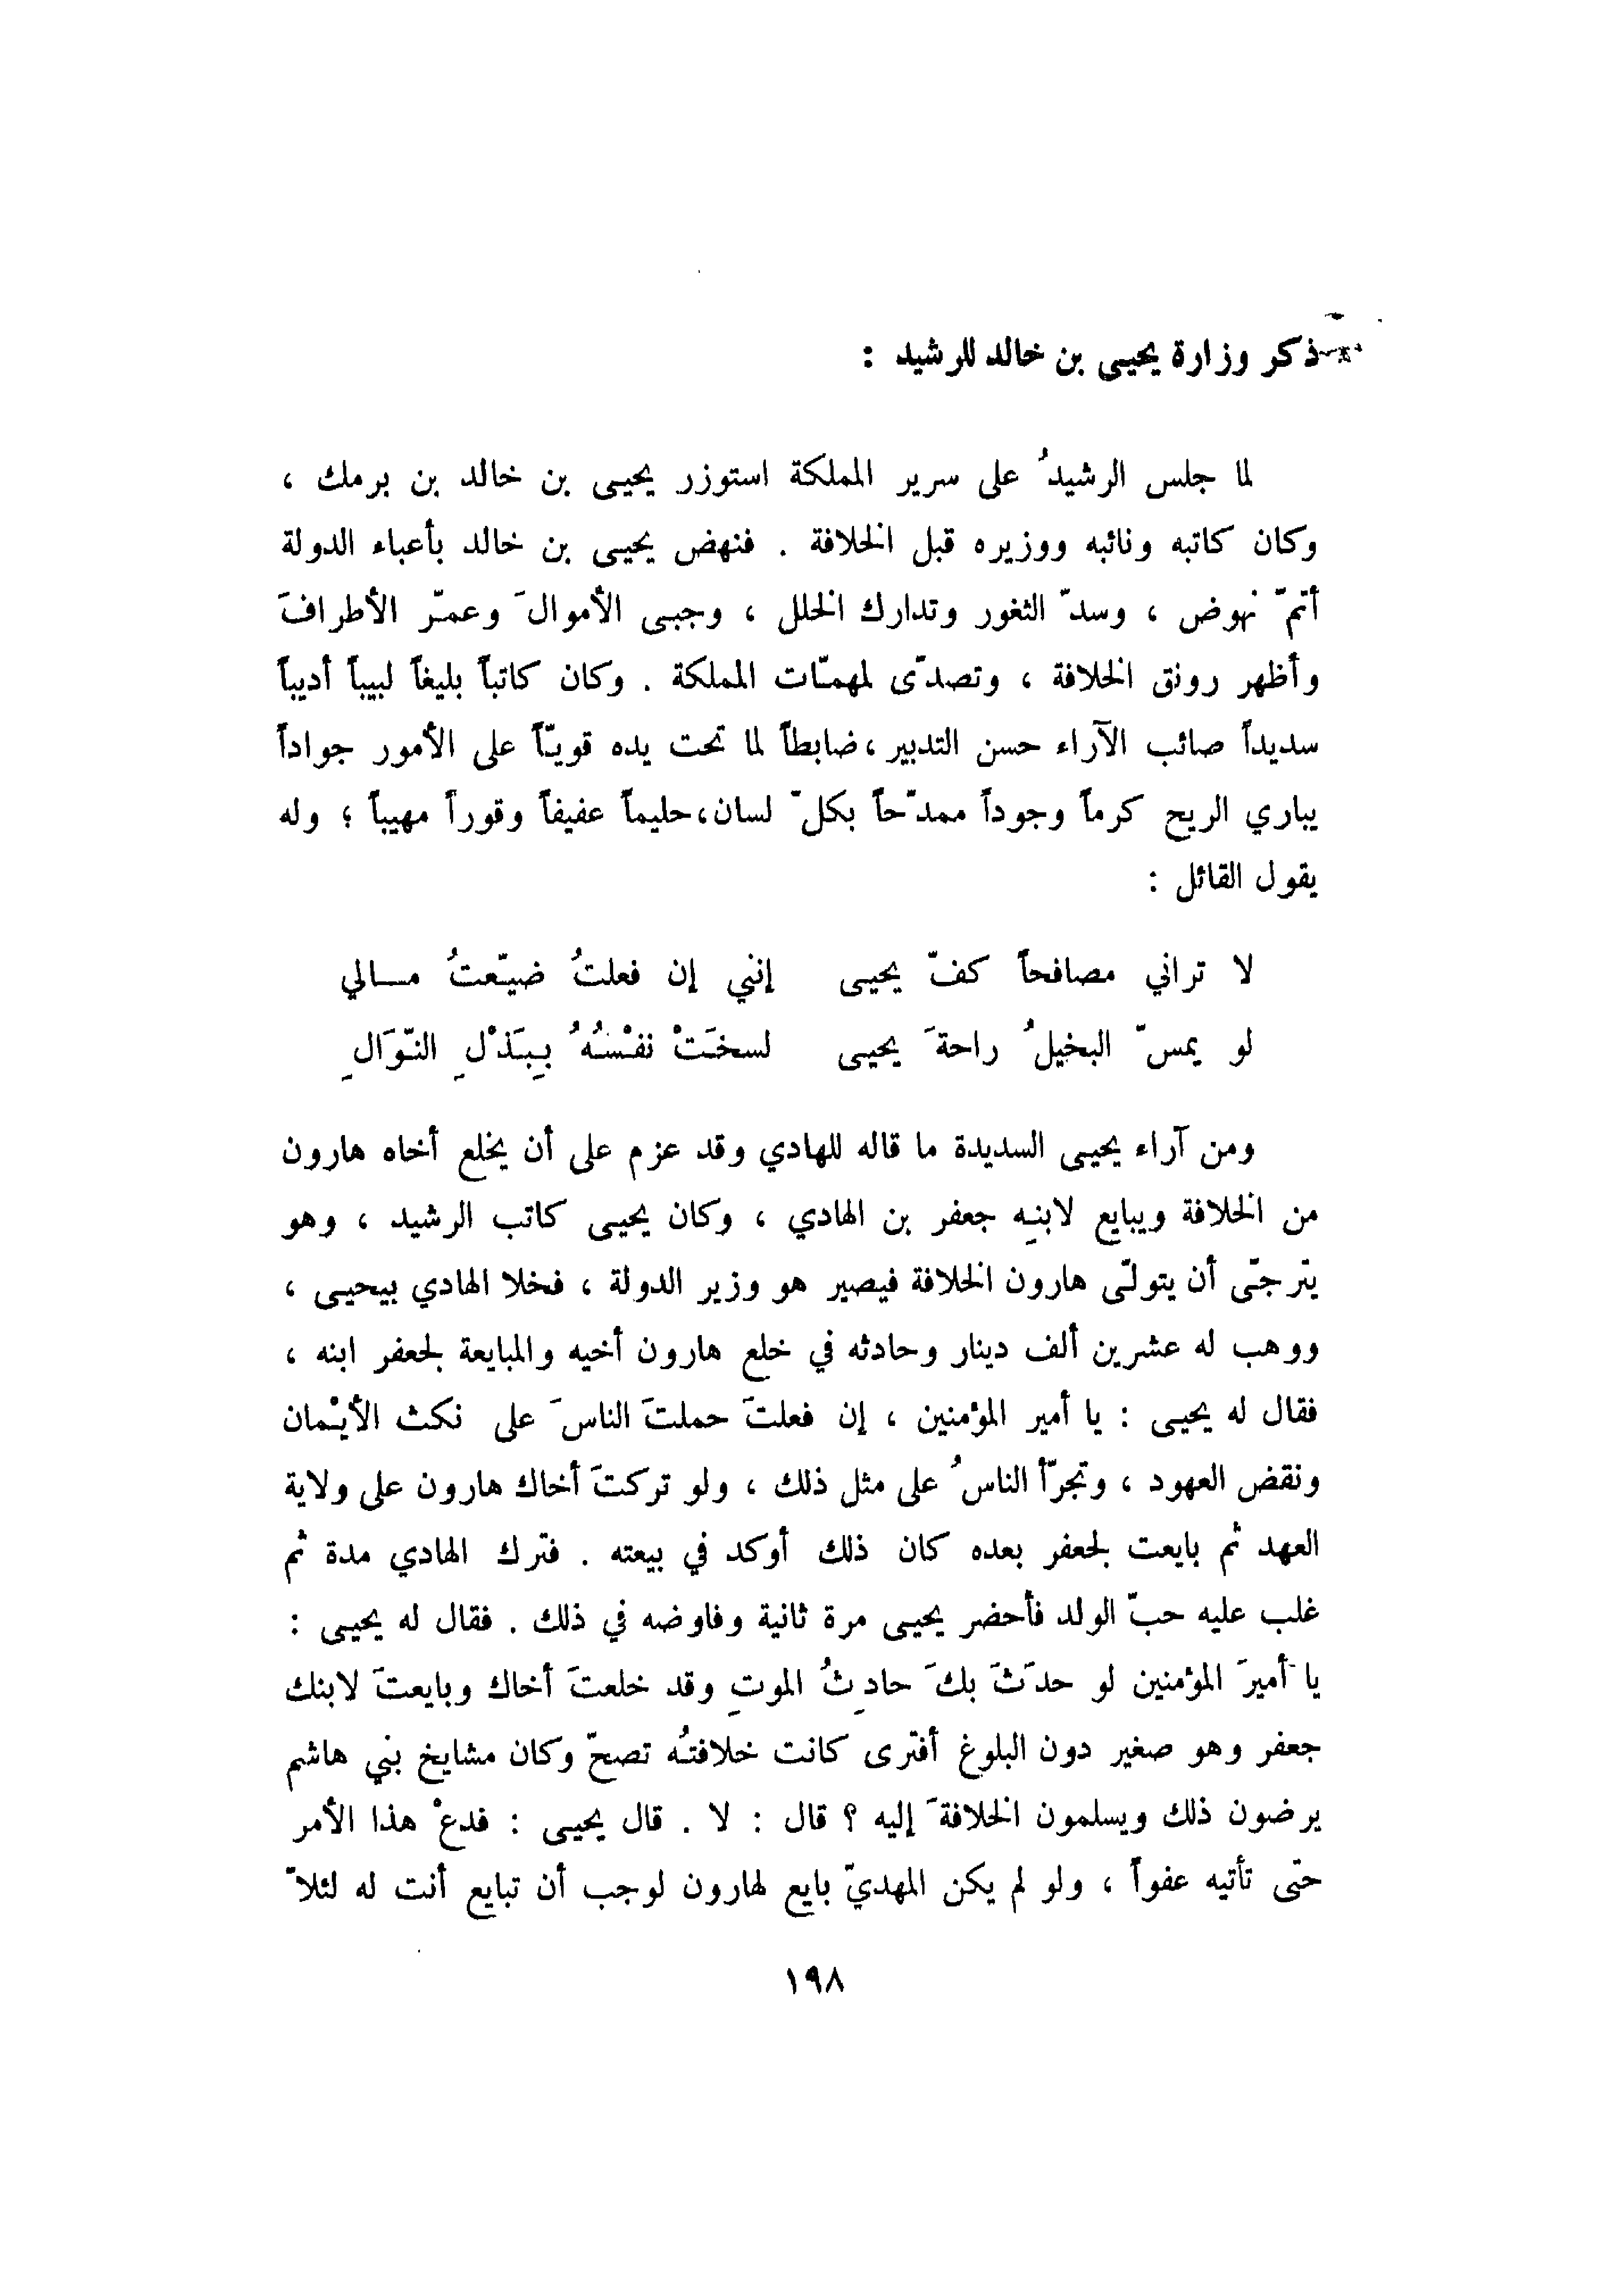 ذكر وزارة يحيى بن خالد للرشيد :
لما جلس الرشيدُ على سرير المملكة استوزر يحيى بن خالد بن برمك ،
وكان كاتبه ونائبه ووزيره قبل الخلافة . فنهض يحيى بن خالد بأعباء الدولة
أتمّ نهوض ، وسدّ الثغور وتدارك الخلل ، وجبى الأموالَ وعمّر الأطرافَ
وأظهر رونق الخلافة ، وتصدّى لمهمّات المملكة . وكان كاتباً بليغاً لبيباً أديباً
سديداً صائب الآراء حسن التدبير ، ضابطاً لما تحت يده قويّاً على الأمور جواداً
يباري الريح كرماً وجوداً ممدّحاً بكلّ لسان، حليماً عفيفاً وقوراً مهيباً ؛ وله
يقول القائل :
لا تراني مصافحاً كفّ يحيى إنني إن فعلتُ ضيّعتُ مالي
لو يمسّ البخيلُ راحةَ يحيى لسخَتْ نفْسُهُ بِبَذْلِ النّوَالِ
ومن آراء يحيى السديدة ما قاله للهادي وقد عزم على أن يخلع أخاه هارون
من الخلافة ويبايع لابنِه جعفر بن الهادي ، وكان يحيى كاتب الرشيد ، وهو
يترجّى أن يتولّى هارون الخلافة فيصير هو وزير الدولة ، فخلا الهادي بيحيى ،
ووهب له عشرين ألف دينار وحادثه في خلع هارون أخيه والمبايعة لجعفر ابنه ،
فقال له يحيى : يا أمير المؤمنين ، إن فعلتَ حملتَ الناسَ على نكث الأيْمان
ونقض العهود ، وتجرّأ الناسُ على مثل ذلك ، ولو تركتَ أخاك هارون على ولاية
العهد ثم بايعت لجعفر بعده كان ذلك أوكد في بيعته . فترك الهادي مدة ثم
غلب عليه حبّ الولد فأحضر يحيى مرة ثانية وفاوضه في ذلك . فقال له يحيى :
يا أميرَ المؤمنين لو حدَثَ بكَ حادِثُ الموتِ وقد خلعتَ أخاك وبايعتَ لابنك
جعفر وهو صغير دون البلوغ أفترى كانت خلافتُه تصحّ وكان مشايخ بني هاشم
يرضون ذلك ويسلمون الخلافةَ إليه ؟ قال : لا . قال يحيى : فدعْ هذا الأمر
حتّى تأتيه عفواً ، ولو لم يكن المهديّ بايع لهارون لوجب أن تبايع أنت له لئلاّ
١٩٨